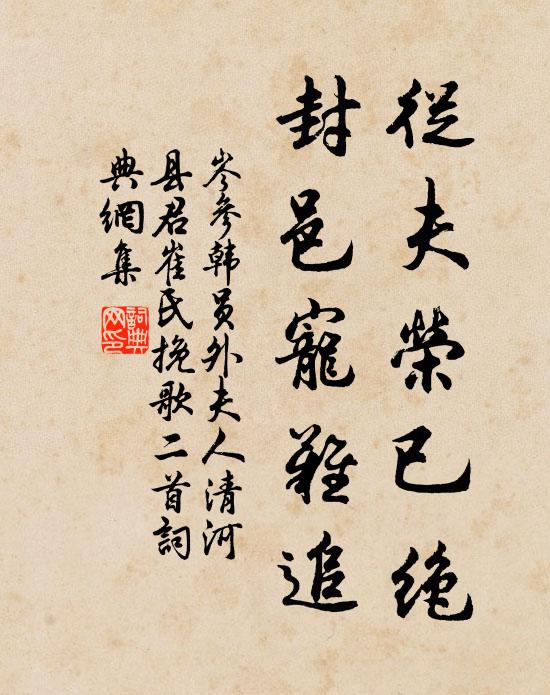 從夫榮已絶
封邑寵難追
岑參韓员外夫人清河
县君崔氏挽歌二首詞
典網集
詞典網印